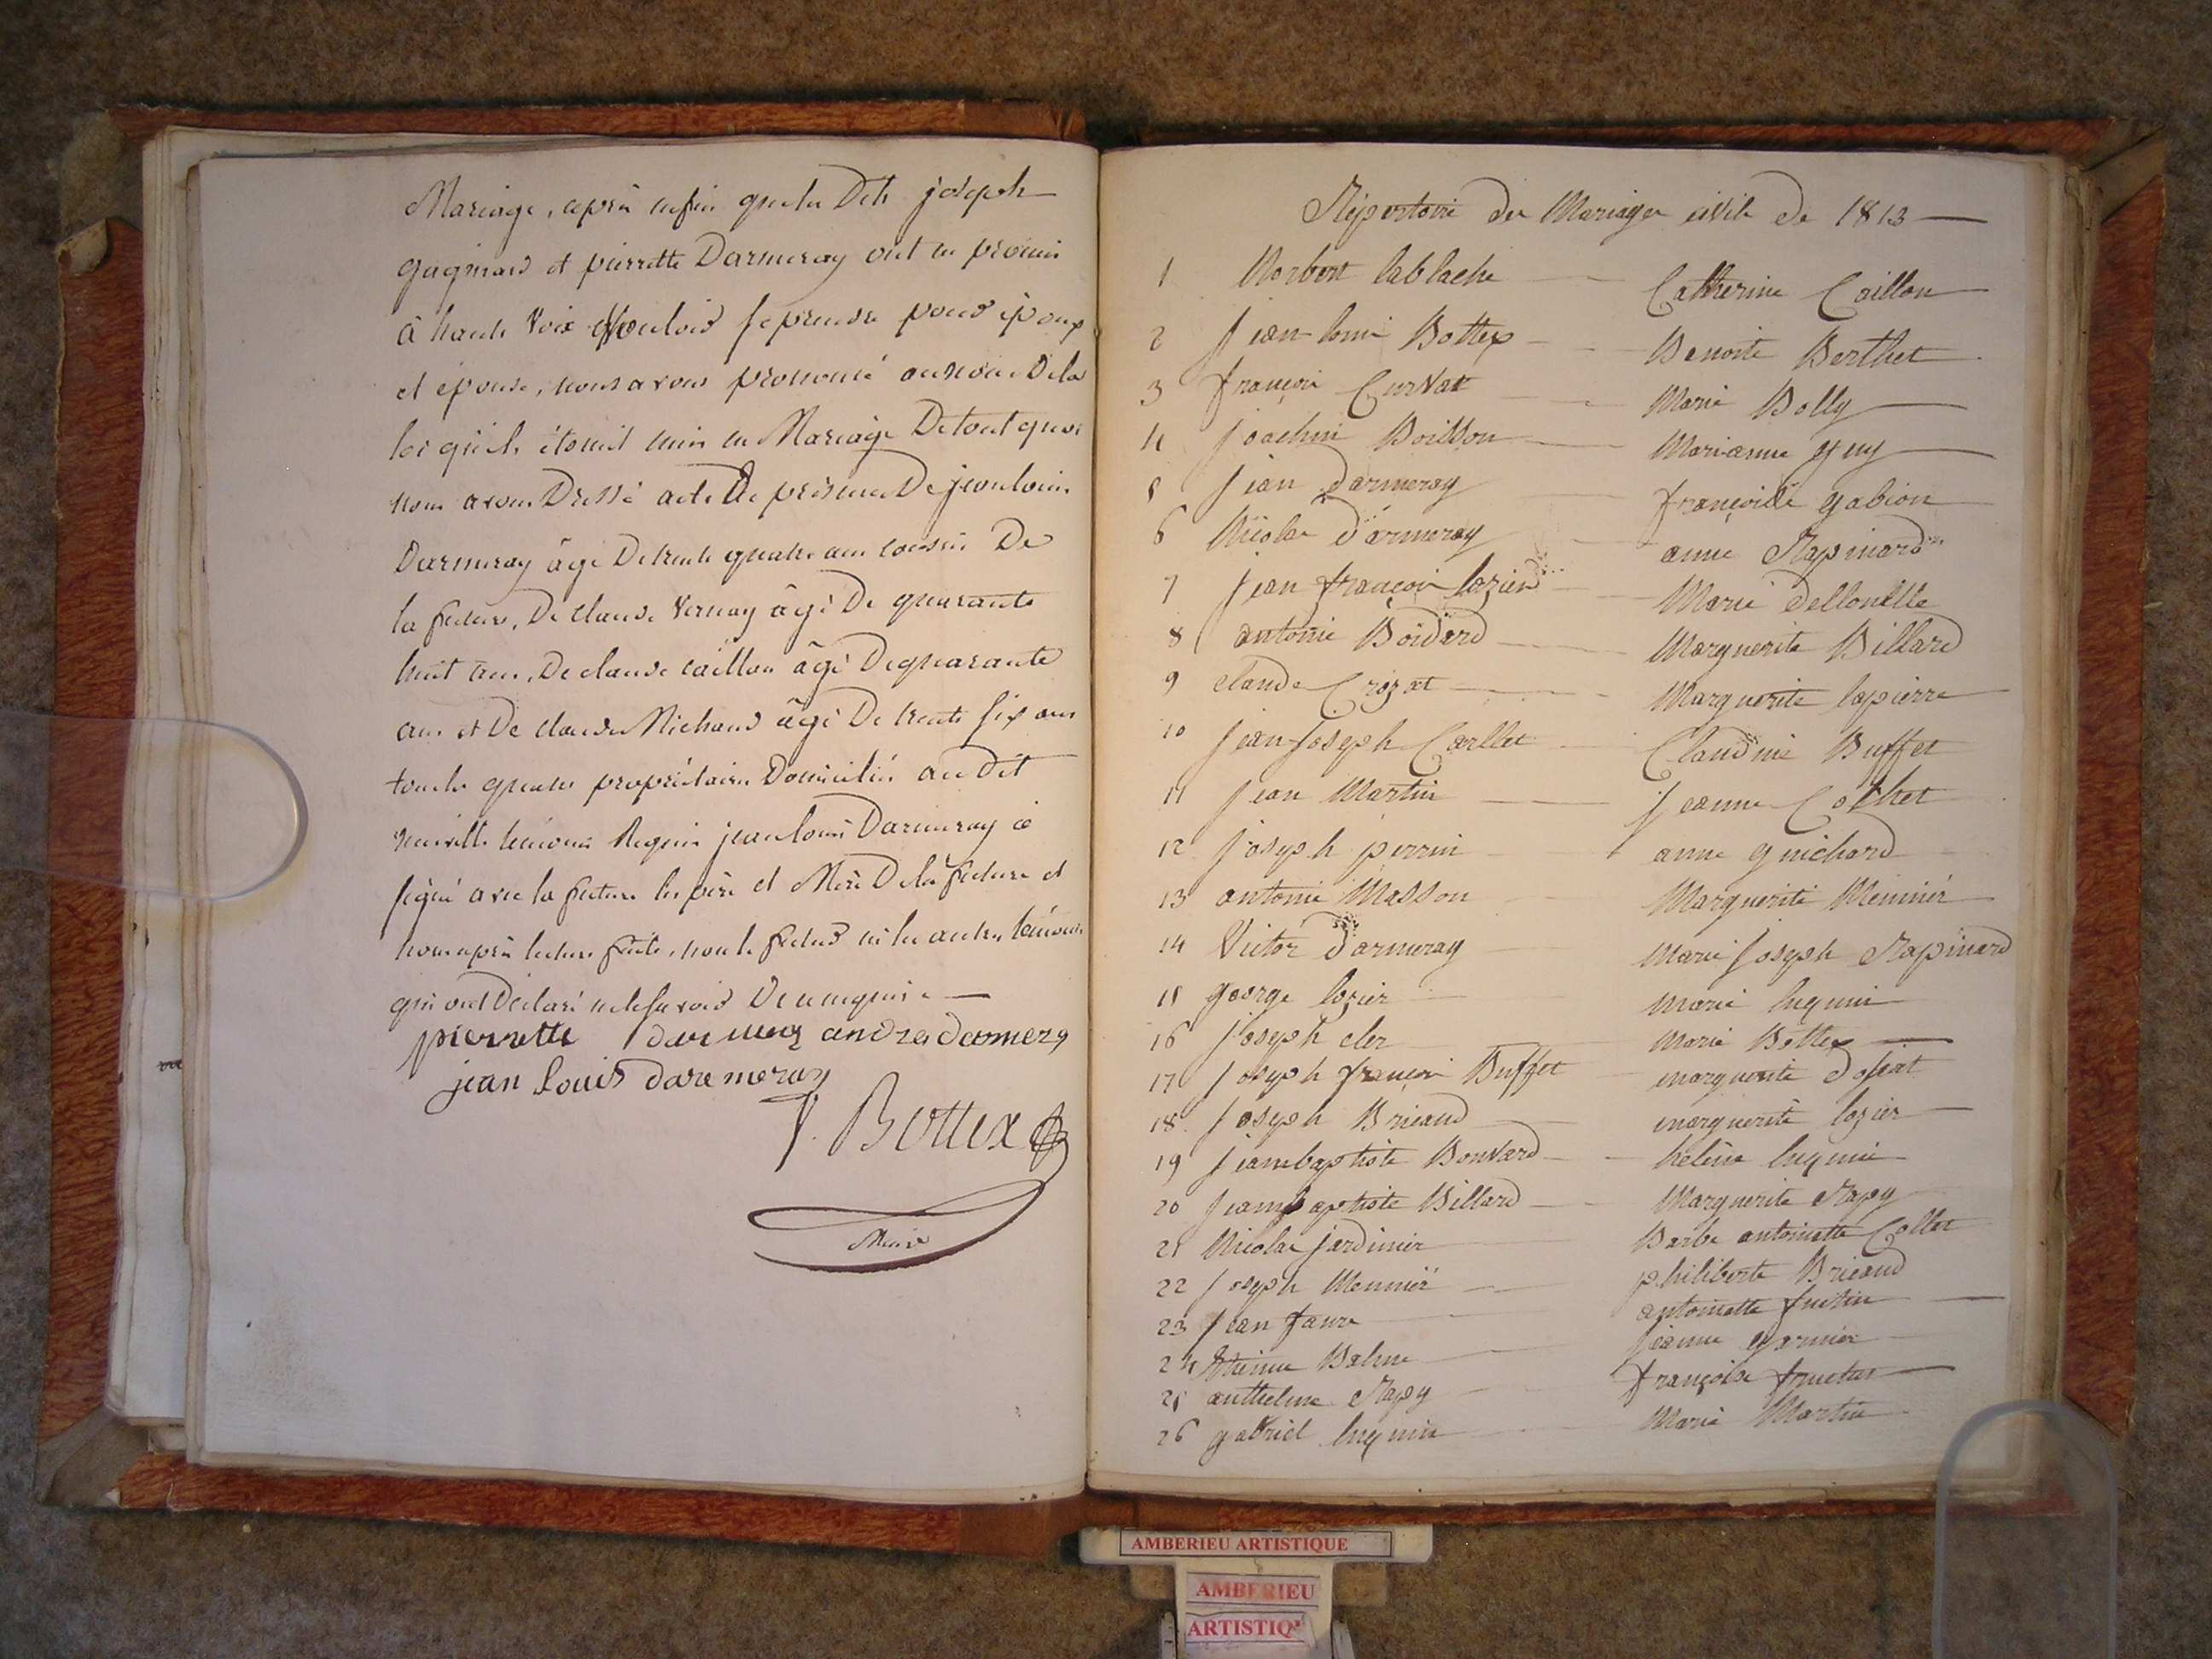 Mariage, après enfin que les Dits joseph
gagnard et pierrette Darmeray ont eu promis
à haute Voix Vouloir se prendre pour époux
et épouse, nous avons prononcé au nom De la
loi qu'ils étoient unis en Mariage De tout quoi
nous avons Dressé acte En présence De jean louis
Darmeray âgé De trente quatre ans cousin De
la future, De claude Vernay âgé De quarante
huit ans, De claude caillon âgé De quarante
ans et De claude Michaud âgé De trente six ans
tous les quatre propriétaires Domiciliés au Dit
neuville témoins Requis jean louis Darmeray a
signé avec la future les père et Mère De la future et
nous après lecture faite, non le futur ni les autres témoins
qui ont Déclaré ne le savoir De ce enquis.
pierrette darmeray andré darmeray
jean louis daremeray
J. Bottex
Maire
Répertoire des Mariages civils de 1813
1 Norbert lablache Catherine Caillon
2 Jean louis Bottex Benoite Berthet
3 françois Curvat Marie Bolly
4 joachim Boisson Marianne guy
5 Jean Darmeray françoise gabion
6 Nicolas D'armeray anne Rapinard
7 Jean françois lozier Marie Dellonette
8 antoine Boidard Marguerite Billard
9 Claude Crozat Marguerite lapierre
10 Jean-Joseph Carllet Claudine Buffet
11 Jean Martin Jeanne Cochet
12 joseph perrin anne guichard
13 antoine Masson Marguerite Meunier
14 Victor Darmeray Marie Joseph Rapinard
15 george lozier marie luquin
16 Joseph cler Marie Bottex
17 Joseph françois Buffet marguerite dosiat
18 Joseph Bricaud marguerite lozier
19 jeanbaptiste Bouvard hélène luquin
20 Jeanbaptiste Billard Marguerite Rapy
21 Nicolas jardinier Barbe antoinette Collet
22 Joseph Meunier philiberte Bricaud
23 Jean faure antoinette
24 Etienne Balme jeanne garnier
25 anthelme Rapy françoise fructus
26 gabriel luquin Marie Martin
AMBERIEU ARTISTIQUE
AMBERIEU
ARTISTIQ